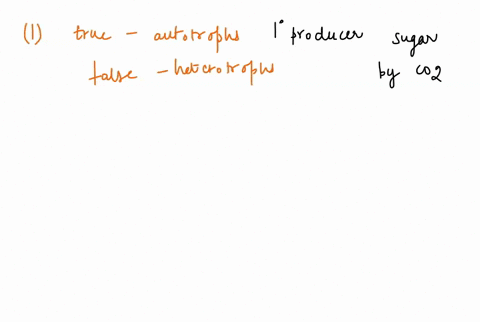 (1) true - autotrophs 1° producer sugar
false - heterotrophs by CO2